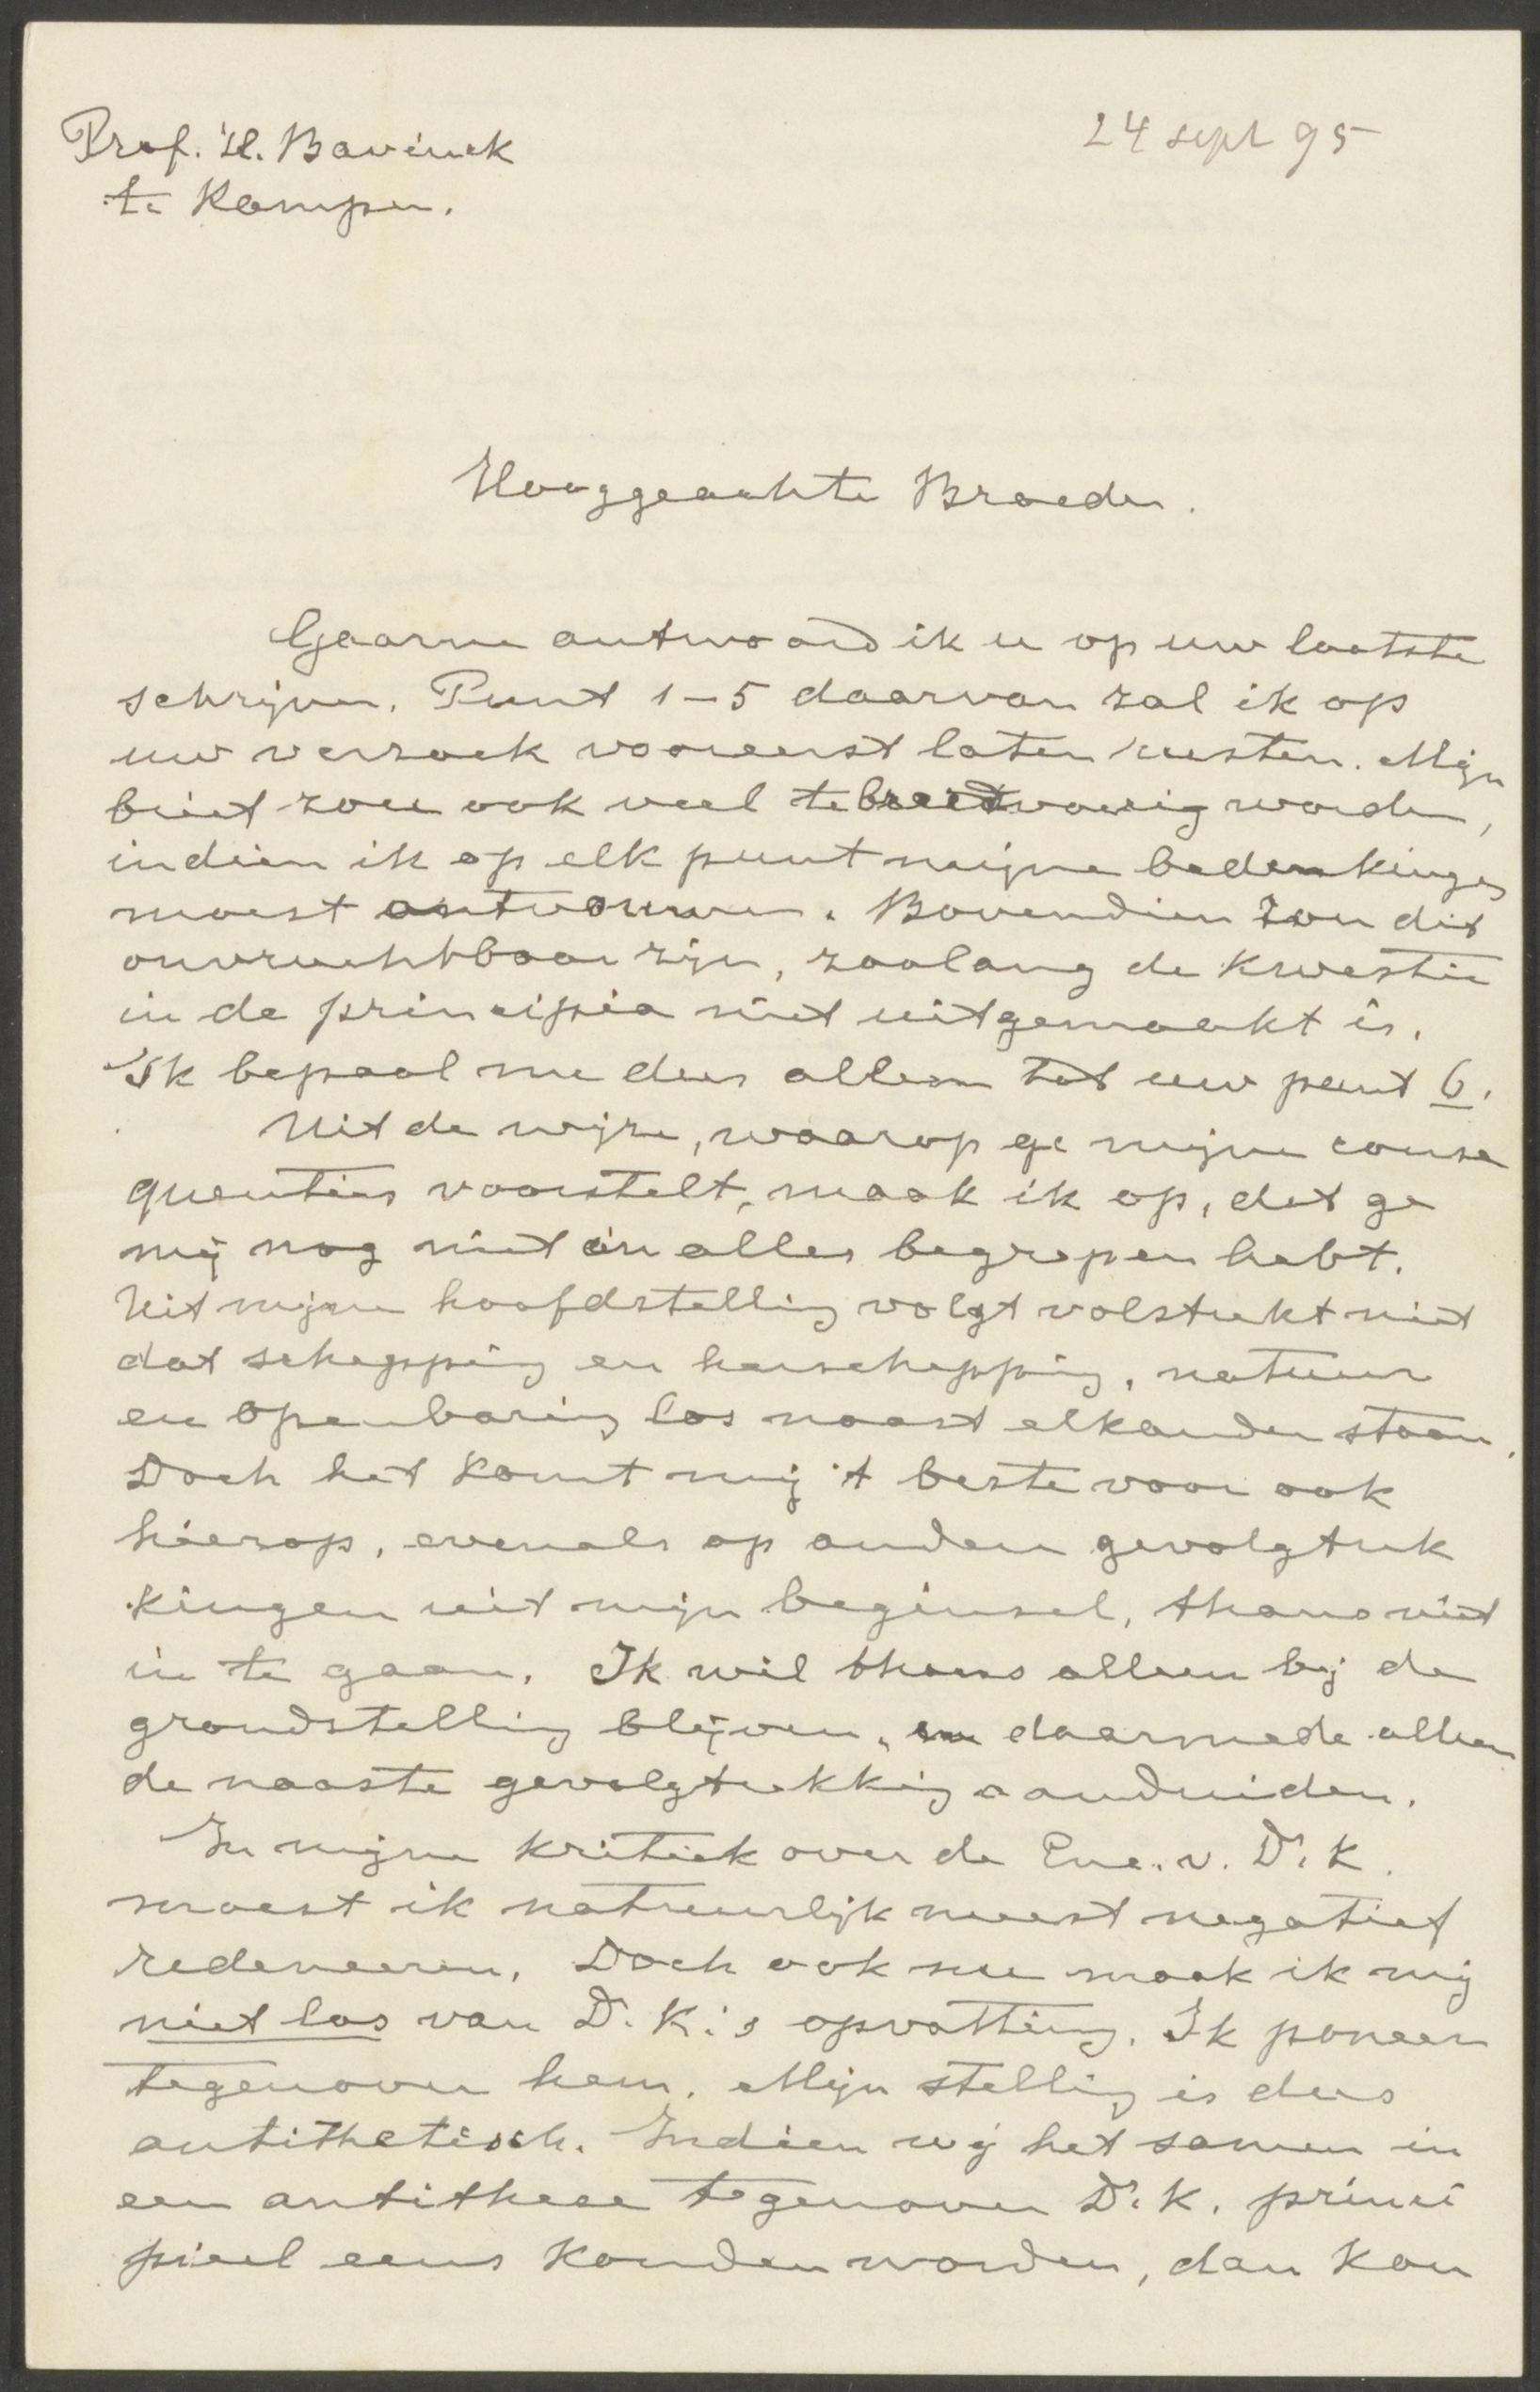 Prof. H. Bavinck
te Kampen.
24 sept 95
Hooggeachte Broeder.
Gaarne antwoord ik u op uw laatste
schrijven. Punt 1-5 daarvan zal ik op
uw verzoek vooreerst laten rusten. Mijn
brief zou ook veel te breedvoerig worden,
indien ik op elk punt mijne bedenkingen
moest ontvouwen. Bovendien zou dit
onvruchtbaar zijn, zoolang de kwestie
in de principia niet uitgemaakt is.
Ik bepaal me dus alleen tot uw punt 6.
Uit de wijze, waarop ge mijne conse
quenties voorstelt, maak ik op, dat ge
mij nog niet in alles begrepen hebt.
Uit mijne hoofdstelling volgt volstrekt niet
dat schepping en herschepping, natuur
en openbaring los naast elkander staan.
Doch het komt mij 't beste voor ook
hierop, evenals op andere gevolgtrek
kingen uit mijn beginsel, thans niet
in te gaan. Ik wil thans alleen bij de
grondstelling blijven, en daarmede alleen
de naaste gevolgtrekking aanduiden.
In mijne kritiek over de Enc. v. Dr. K.
moest ik natuurlijk meest negatief
redeneeren. Doch ook nu maak ik mij
niet los van Dr. K.'s opvatting. Ik poneer
tegenover hem. Mijn stelling is dus
antithetisch. Indien wij het samen in
een antithese tegenover Dr. K. princi
pieel eens konden worden, dan kon